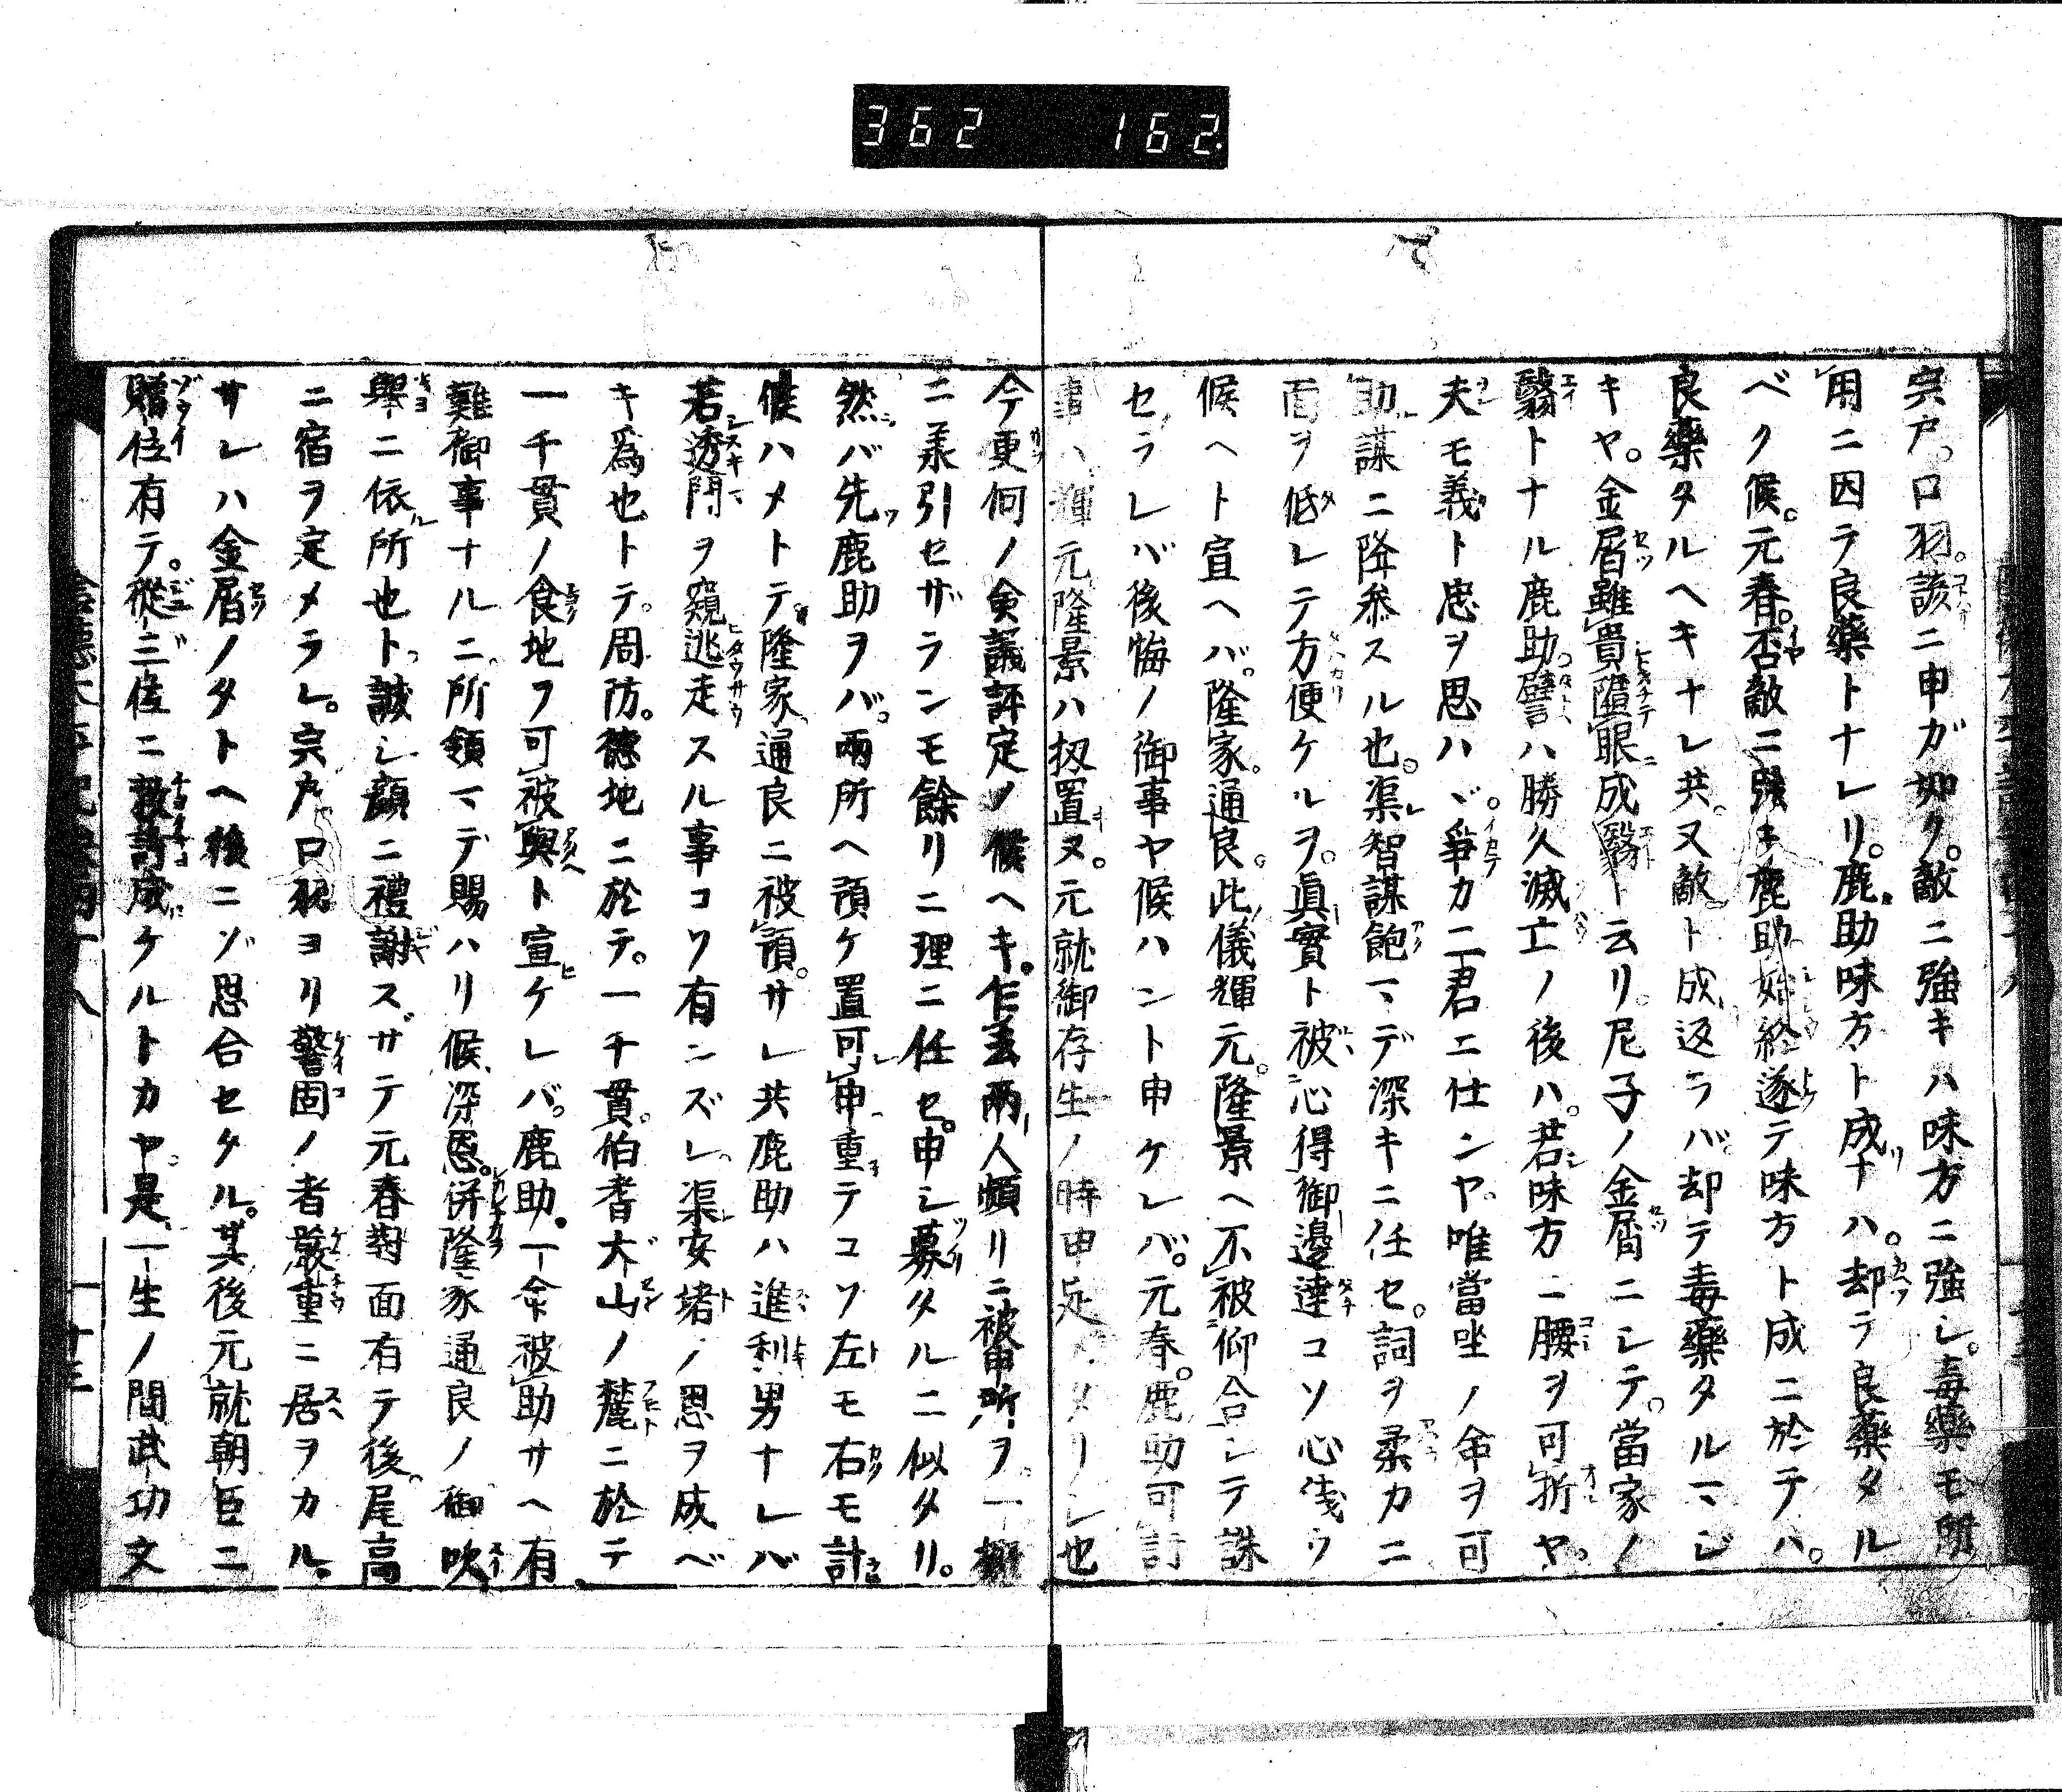 362 162
宍戸。口羽。諺ニ申ガ如ク。敵ニ強キハ味方ニ強シ。毒藥モ所
用ニ因テ良藥トナレリ。鹿助味方ト成ナハ。却テ良藥タル
ベク候。元春。否敵ニ強キ鹿助始終遂テ味方ト成ニ於テハ。
良藥タルヘキナレ共。又敵ト成返ラバ却テ毒藥タルマジ
キヤ。金屑雖貴墮眼成翳ト云リ。尼子ノ金屑ニシテ。當家ノ
翳トナル鹿助。譬ハ勝久滅亡ノ後ハ。若味方ニ腰ヲ可折ヤ。
夫モ義ト忠ヲ思ハヾ。爭カ二君ニ仕ンヤ。唯當坐ノ命ヲ可
助謀ニ降参スル也。渠智謀飽マデ深キニ任セ。詞ヲ柔カニ
面ヲ低レテ方便ケルヲ。眞實ト被心得御邊達コソ心浅ウ
候ヘト宣ヘバ。隆家。通良。此儀輝元。隆景ヘ不被仰合シテ誅
セラレバ後悔ノ御事ヤ候ハント申ケレバ。元春。鹿助可討
事ハ輝元隆景ハ扨置ヌ。元就御存生ノ時申定メタリシ也
今更何ノ僉議評定ノ候ヘキ。乍去兩人頻リニ被申所ヲ。一概
ニ承引セザランモ餘リニ理ニ任セ。申シ募タルニ似タリ。
然バ先鹿助ヲバ。兩所ヘ預ケ置可申重テコソ左モ右モ計
候ハメトテ。隆家通良ニ被預。サレ共鹿助ハ進利男ナレバ
若透間ヲ窺逃走スル事コソ有ンズレ。渠安堵ノ思ヲ成ベ
キ爲也トテ。周防。德地ニ於テ。一千貫。伯耆大山ノ麓ニ於テ
一千貫ノ食地ヲ可被與ト宣ケレバ。鹿助。一命被助サヘ有
難御事ナルニ。所領マデ賜ハリ候。深恩。併隆家通良ノ御吹
擧ニ依所也ト。誠シ顔ニ禮謝ス。サテ元春對面有テ後。尾高
ニ宿ヲ定メラレ。宍戸口羽ヨリ警固ノ者嚴重ニ居ヲカル。
サレハ金屑ノタトヘ後ニゾ思合セタル。其後元就朝臣ニ
贈位有テ。從三位ニ敍許成ケルトカヤ。是一生ノ間武功文